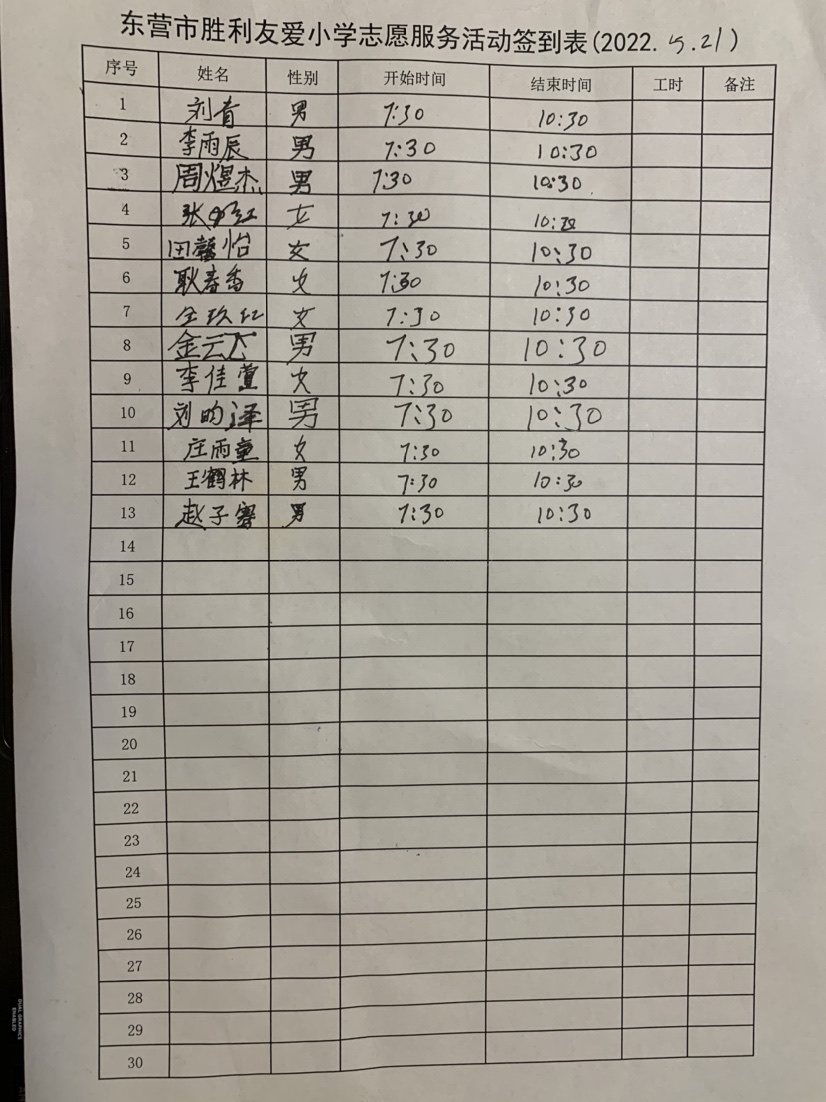 东营市胜利友爱小学志愿服务活动签到表(2022. 5.21)
序号 姓名 性别 开始时间 结束时间 工时 备注
1 刘青 男 7:30 10:30
2 李雨辰 男 7:30 10:30
3 周煜杰 男 7:30 10:30
4 张 红 女 7:30 10:30
5 田馨怡 女 7:30 10:30
6 耿春香 女 7:30 10:30
7 玖红 女 7:30 10:30
8 金云飞 男 7:30 10:30
9 李佳萱 女 7:30 10:30
10 刘昀泽 男 7:30 10:30
11 庄雨童 女 7:30 10:30
12 王鹤林 男 7:30 10:30
13 赵子骞 男 7:30 10:30
14
15
16
17
18
19
20
21
22
23
24
25
26
27
28
29
30
DUAL GRAPHICS
ENABLED